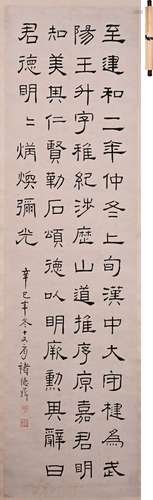 至建和二年仲冬上旬漢中大守楗為武
陽王升字稚紀涉歷山道推序原嘉君明
知美其仁賢勒石頌德以明厥勳其辭曰
君德明〻炳煥彌光
辛巳年冬 褚德彝